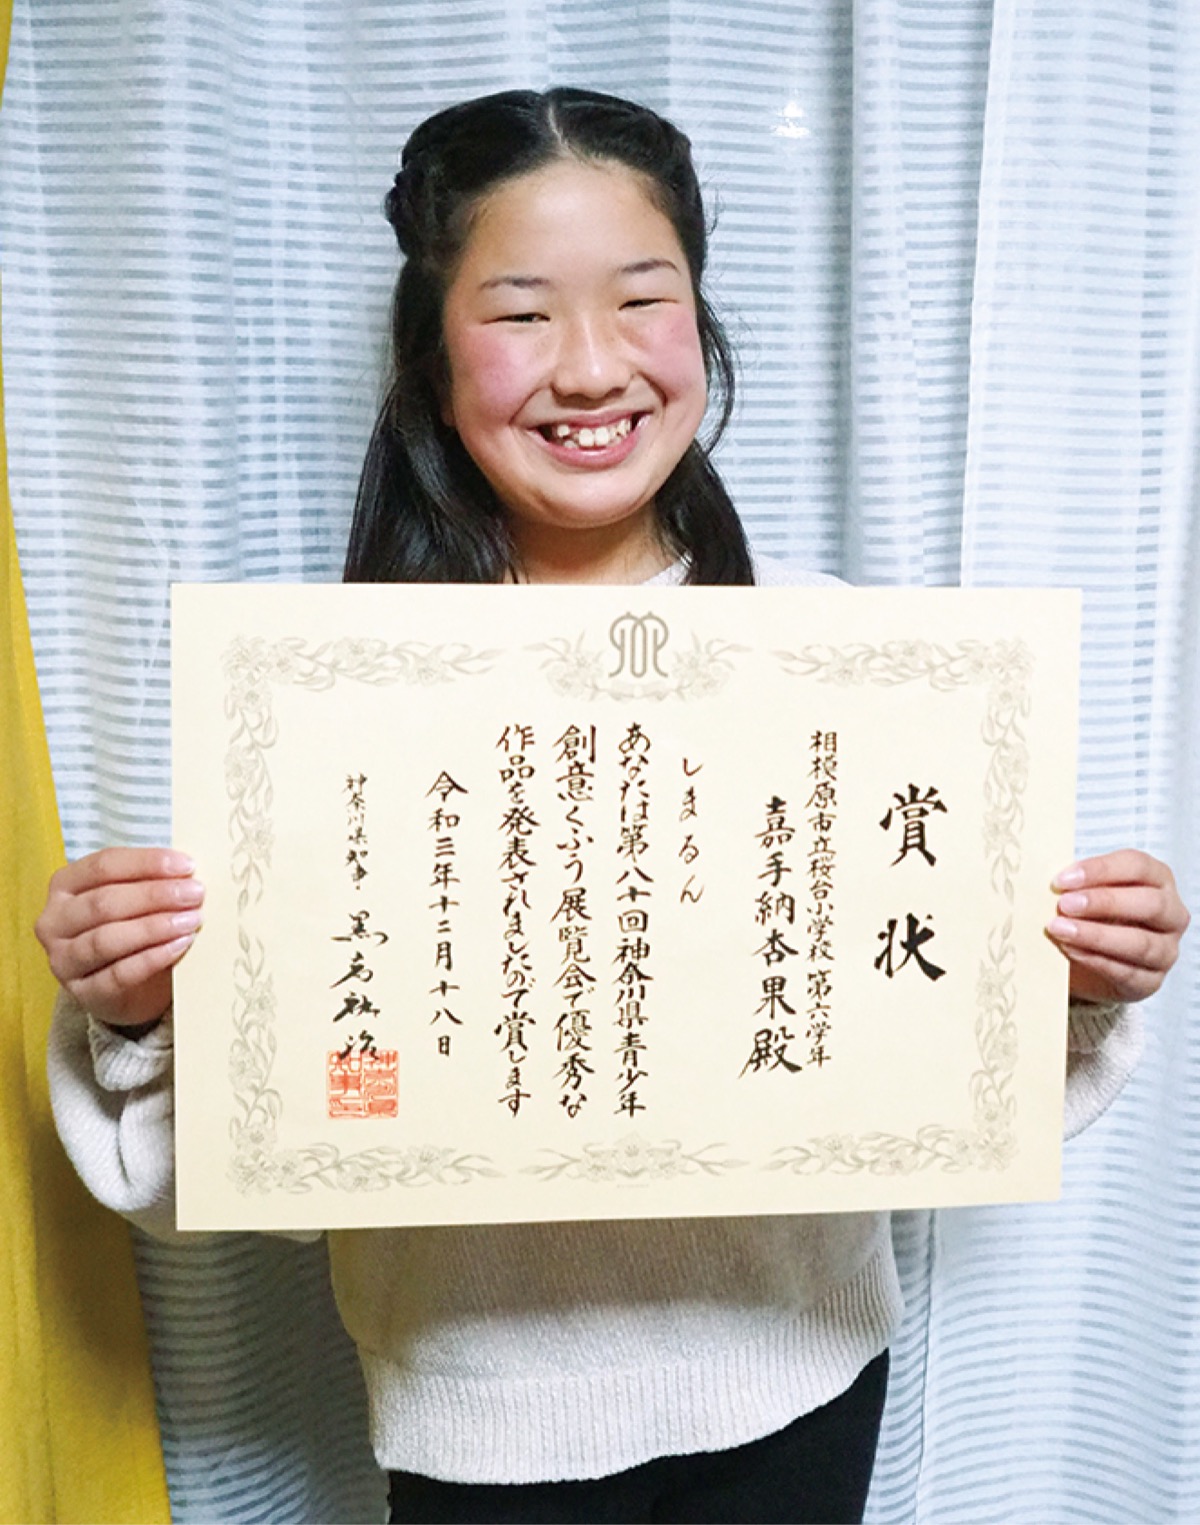 賞状
相模原市立桜台小学校 第六学年
嘉手納杏果殿
しまるん
あなたは第八十回神奈川県青少年
創意くふう展覧会で優秀な
作品を発表されましたので賞します
令和三年十二月十八日
神奈川県知事 黒岩祐治